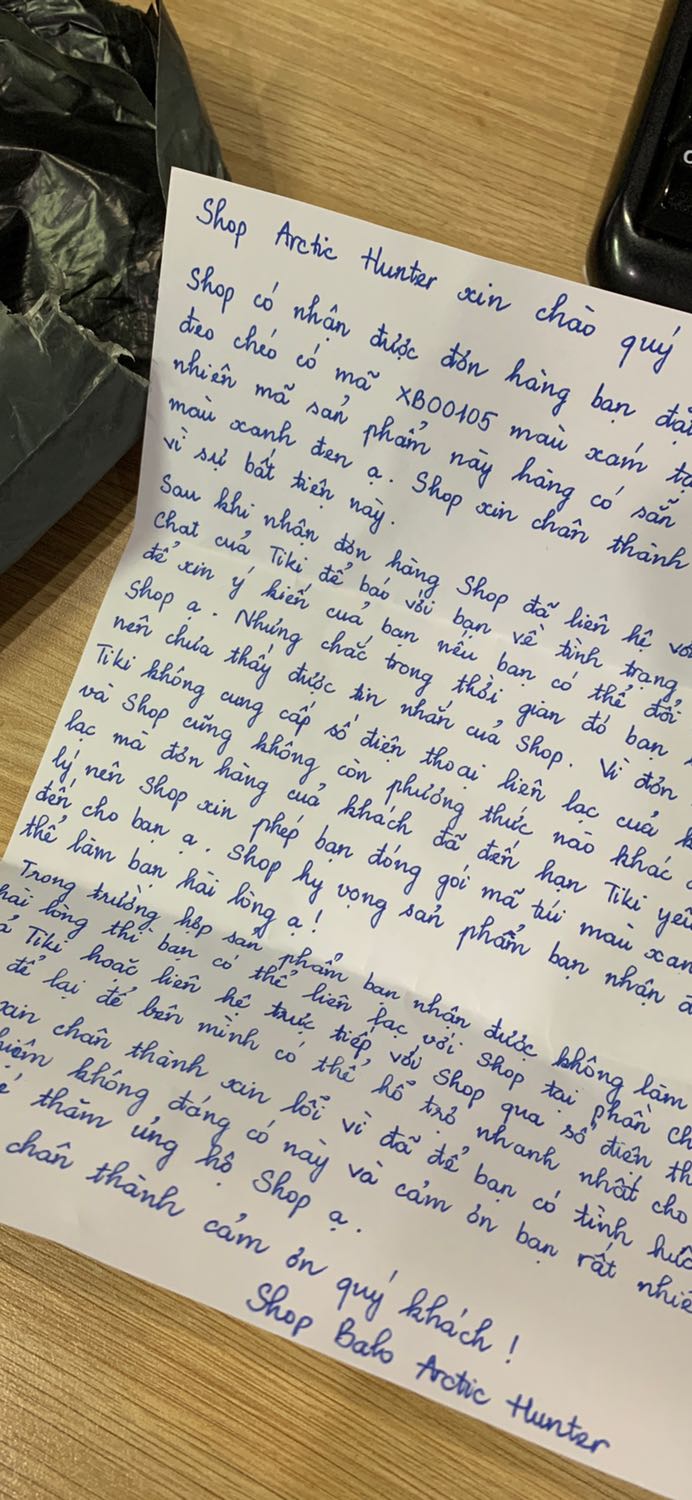 Shop Arctic Hunter xin chào quý
Shop có nhận được đơn hàng bạn đặt
đeo chéo có mã XB00105 màu xám tu
nhiên mã sản phẩm này hàng có sẵn
màu xanh đen ạ. Shop xin chân thành
vì sự bất tiện này.
Sau khi nhận đơn hàng Shop đã liên hệ vớ
Chat của Tiki để báo với bạn về tình trạng
để xin ý kiến của bạn nếu bạn có thể đổi
Shop ạ. Nhưng chắc trong thời gian đó bạn
nên chưa thấy được tin nhắn của Shop. Vì đơn
Tiki không cung cấp số điện thoại liên lạc của k
và Shop cũng không còn phương thức nào khác
lạc mà đơn hàng của khách đã đến hạn Tiki yêu
lý nên Shop xin phép bạn đóng gói mã túi màu xan
đến cho bạn ạ. Shop hy vọng sản phẩm bạn nhận đ
thể làm bạn hài lòng ạ!
Trong trường hợp sản phẩm bạn nhận được không làm
hài lòng thì bạn có thể liên lạc với Shop tại phần ch
Tiki hoặc liên hệ trực tiếp với Shop qua số điện th
để lại để bên mình có thể hỗ trợ nhanh nhất cho
xin chân thành xin lỗi vì đã để bạn có tình huố
không đáng có này và cảm ơn bạn rất nhiề
thăm ủng hộ Shop ạ.
chân thành cảm ơn quý khách!
Shop Balo Arctic Hunter